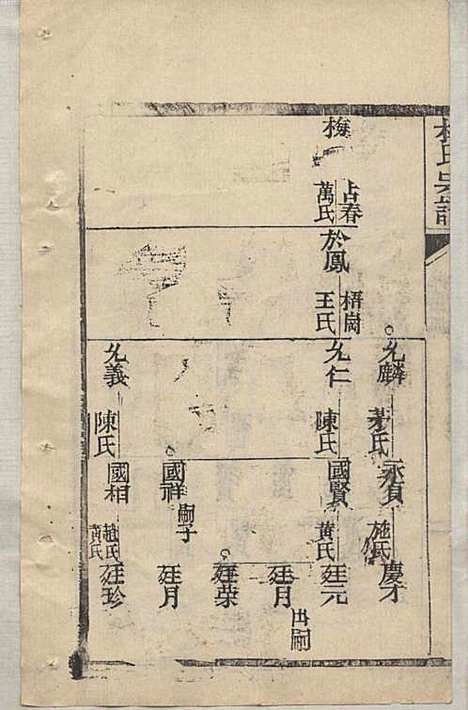 梅
占春
萬氏
於鳳
梧崗
王氏
允麟
茅氏
允仁
陳氏
允義
陳氏
施氏
國賢
黄氏
國祥
嗣子
國相
趙氏
黃氏
慶才
廷元
廷月
出嗣
廷荣
廷月
廷珍